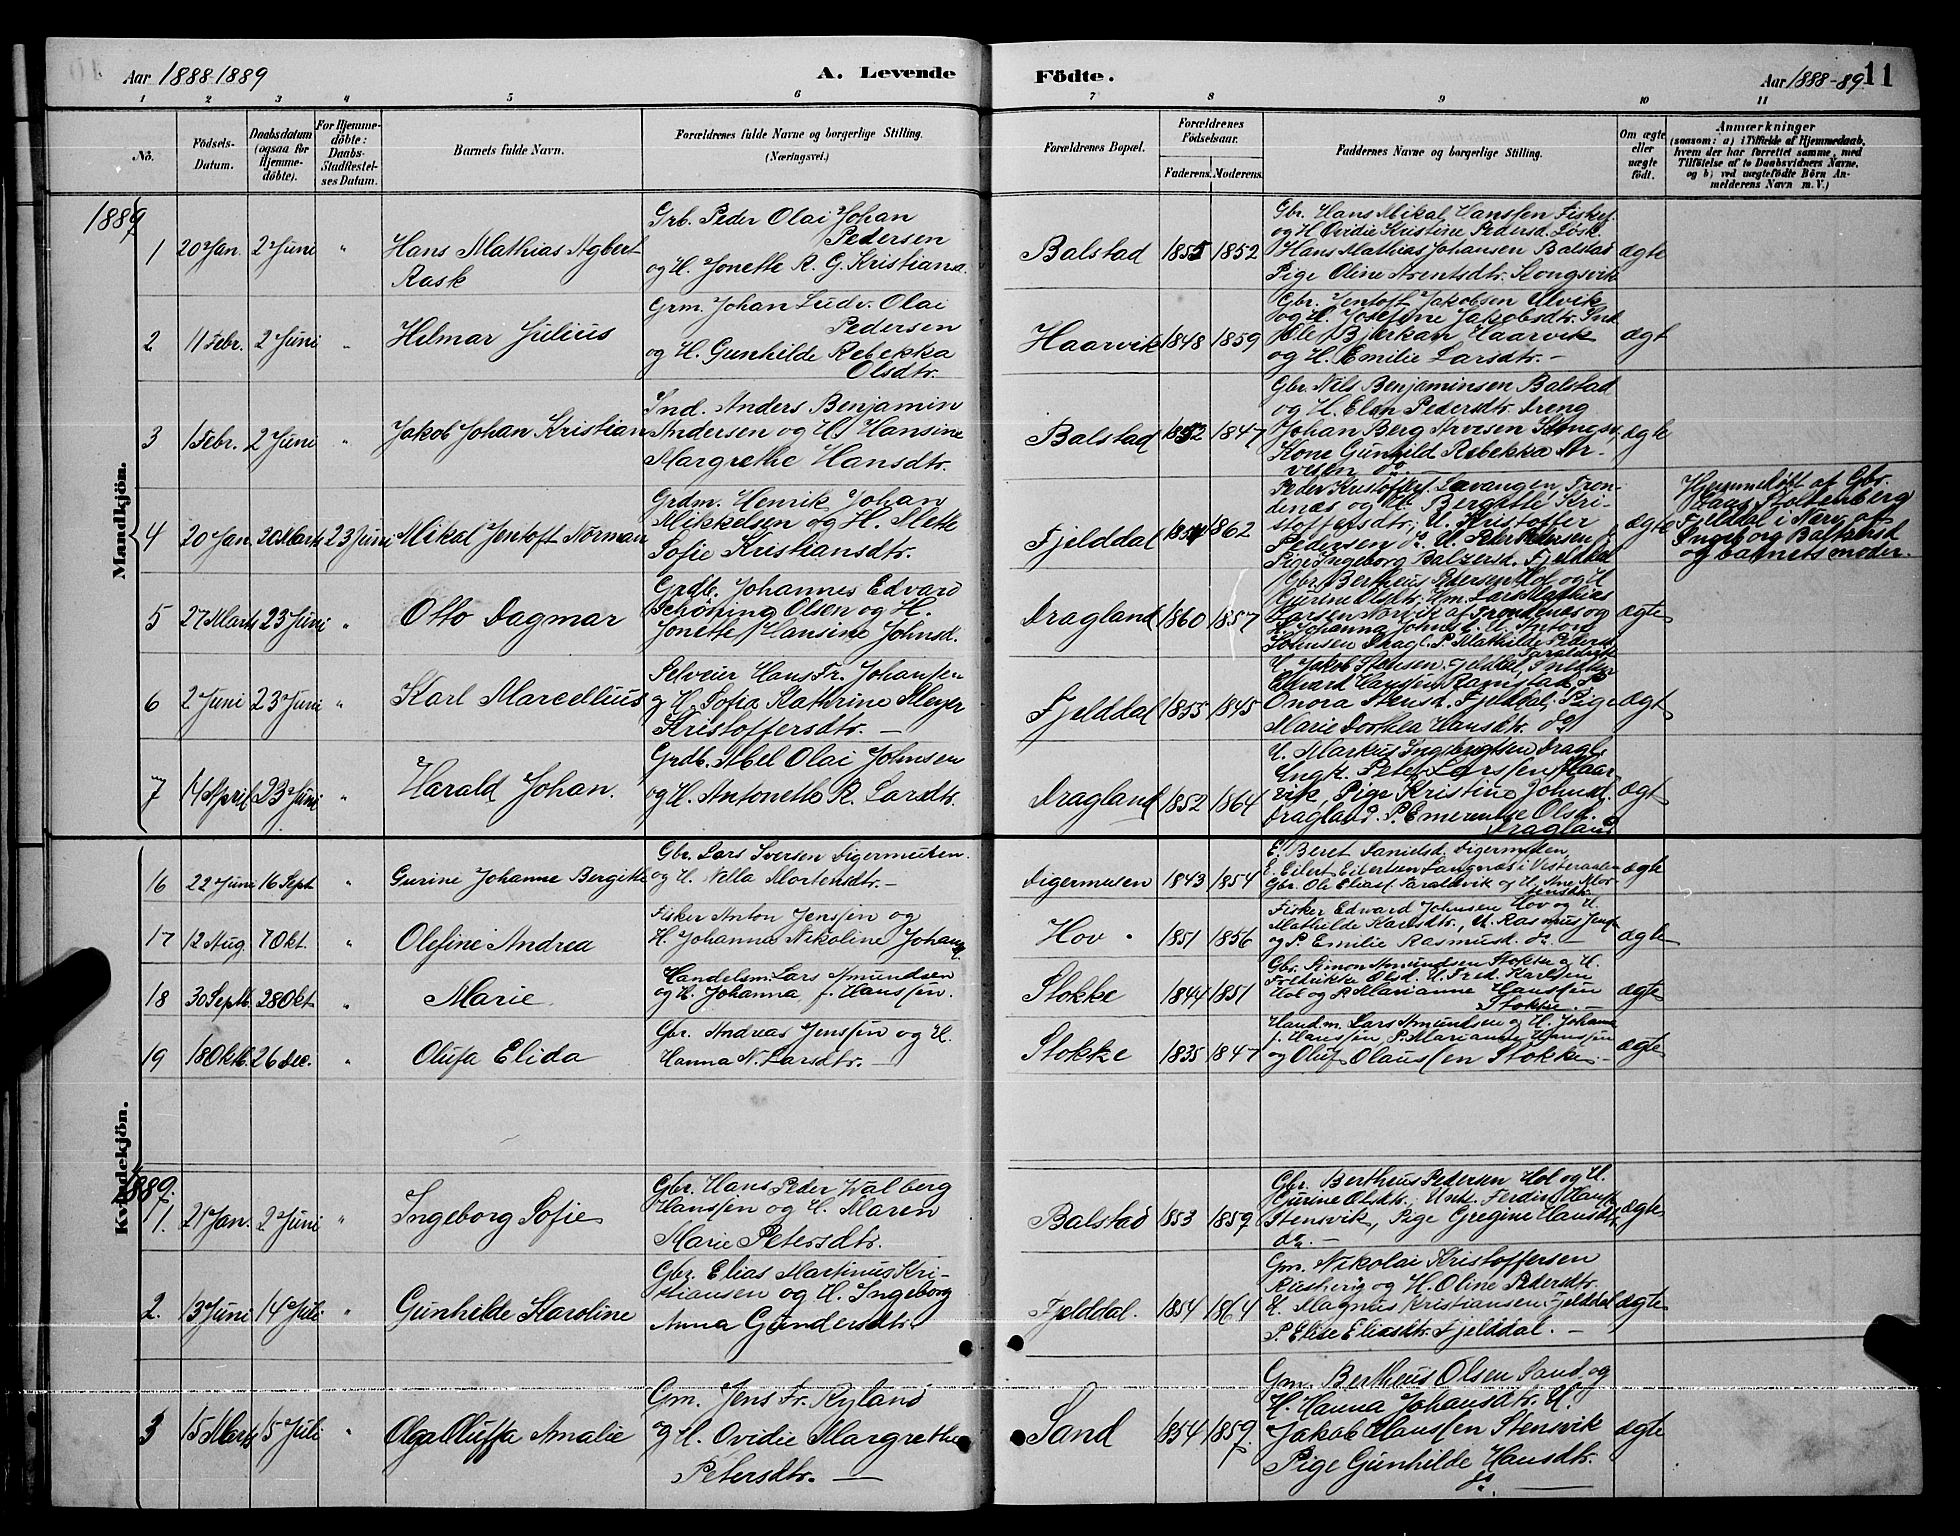 Aar 1888-1889
A. Levende Födte.
Aar 1888-89. 11
1 2 3 4 5 6 7 8 9 10 11
No.
Födsels-Datum.
Daabsdatum (ogsaa for Hjemme-döbte).
For Hjemme-döbte: Daabs-Stadfæstel-ses Datum.
Barnets fulde Navn.
Forældrenes fulde Navne og borgerlige Stilling. (Næringsvei.)
Forældrenes Bopæl.
Forældrenes Födselsaar.
Faderens. Moderens.
Faddernes Navne og borgerlige Stilling.
Om ægte eller uægte födt.
Anmærkninger
(saasom: a) i Tilfælde af Hjemmedaab, hvem der har forrettet samme, med Tilföielse af to Daabsvidners Navne, og b) ved uægtefödte Börn An-melderens Navn m. V.)
Mandkjön.
1889
1 20 Jan. 2 Juni " Hans Mathias Agbert Rask
Grb. Peder Olai Johan
Pedersen
og H. Jonette R. G. Kristiansd.
Balstad 1855 1852
Gbr. Hans Mikal Hanssen Fiskef.
og H. Ovidie Kristine Pedersd.
Hans Mathias Johansen Balstad
Pige Oline Arentsdtr. Kongsvik
ægte
2 11 Febr. 2 Juni " Hilmar Julius
Grm. Johan Ludv. Olai
Pedersen
og H. Gunhilde Rebekka
Olsdtr.
Haarvik 1848 1859
Gbr. Jentoft Jakobsen Ulvik
og H. Josefine Jakobsdtr. Ind
Ole Bjerkan Haarvik
og H. Emilie Larsdtr. -
ægt
3 1 Febr. 2 Juni " Jakob Johan Kristian
Ind. Anders Benjamin
Andersen og H. Hansine
Margrethe Hansdtr.
Balstad 1852 1847
Gbr. Nils Benjaminsen Balstad
og H. Elen Pedersdtr. Dreng
Johan Berg Arvesen Kongsv.
Kone Gunhild Rebekka Ar-
vesen do.
ægte
4 20 Jan. 20 Marts 23 Juni Mikal Jentoft Norman
Grdm. Henrik Johan
Mikkelsen og H. Mette
Sofie Kristiansdtr.
Fjelddal 1854 1862
Peder Kristoffers. Lavangen, Tron-
denæs og H. Bergitte Kri-
stoffersdtr., U. Kristoffer
Pedersen do. U. Peter Hansen
Pige Ingeborg Baltzersd. Fjelddal
ægte
Hjemmedöbt af Gbr.
Hans Stoltenberg
Fjelddal i Nærv. af
Ingeborg Baltzersd
og barnets moder.
5 27 Marts 23 Juni " Otto Dagmar
Grdb. Johannes Edvard
Schöning Olsen og H.
Jonette Hansine Johnsd.
Dragland 1860 1857
Gbr. Bertheus Pedersen Hol og H
Gurine Olsdtr. Um. Lars Mathias
Larsen Norvik af Trondenæs og
H. Johanna Johnsd. U. Anton
Johnsen Dragl. P. Mathilde Peders
Taraldsvik
ægte
6 2 Juni 23 Juni " Karl Marcellius
Selveier Hans Fr. Johansen
og H. Sofia Kathrine Meyer
Kristoffersdtr. -
Fjelddal 1855 1845
U. Jakob Stensen. Fjelddal,
Edvard Hanssen Ramstad P.
Onora Stensd. Fjelddal, Pige
Marie Dorthea Hansdtr. do
ægt
7 14 April 23 Juni " Harald Johan.
Grdb. Abel Olai Johnsen
og H. Antonette R. Larsdtr.
Dragland 1852 1864
U. Markus Ingebrigtsen Dragl.
Ungk. Peter Larssen Haar
vik, Pige Kristine Johnsd.
Dragland. P. Emerentse Olsd.
Dragland
ægt
Kvindekjön.
16 22 Juni 16 Sept " Gurine Johanne Bergitte
Gbr. Lars Iversen Digermulen.
og H. Nella Mortensdtr. -
Digermulen 1843 1854
E. Beret Danielsd. Digermulen,
E. Eilert Eilertsen Langnæs i Vesteraalen
Gbr. Ole Eliass. Taraldsvik og H. Ane Mor-
tensdtr.
ægte
17 12 Aug. 7 Okt. " Olefine Andrea
Fisker Anton Jenssen og
H. Johanna Nikoline Johans
Hov. 1851 1856
Fisker Edvard Johnsen Hov og H.
Mathilde Larsdtr., U. Rasmus Jens
og P. Emilie Rasmusd. do. -
ægte
18 30 Sept. 28 Okt " Marie
Handelsm. Lars Amundsen
og H. Johanna f. Hanssen.
Stokke 1844 1851
Gbr. Simon Amundsen Stokke og H.
Fredrikke Olsd. U. Fred. Karlsen
Hol og P. Marianne Hanssen
Stokke. -
ægte
19 18 Oktb. 26 Dec. " Olufa Elida
Gbr. Andreas Jenssen og H.
Hanna N. Larsdtr. -
Stokke 1835 1847
Hand.m. Lars Amundsen og H. Johanna
f. Hanssen, P. Marianne Hanssen
og Oluf Olaussen Stokke. -
ægte
1889.
1. 21 Jan. 2 Juni " Ingeborg Sofie
Gbr. Hans Peder Walberg
Hanssen og H. Maren
Marie Petersdtr.
Balstad 1853 1859
Gbr. Bertheus Pedersen Hol og H.
Gurine Olsdtr. Unk. Ferdin. Hans
Stensvik, Pige Gregine Hansdtr
do. -
ægte
2. 13 Juni 14 Juli " Gunhilde Karoline
Gbr. Elias Martinus Kri-
stiansen og H. Ingeborg
Anna Gundersdtr.
Fjelddal. 1854 1864
Gm. Nikolai Kristoffersen
og H. Oline Pedersdtr.
U. Magnus Kristiansen Fjelddal
P. Elise Eliasdtr. Fjelddal. -
ægte
3 15 Marts 15 Juli " Olga Oluffa Amalie
Gm. Jens Fr. Ryland
og H. Ovidie Margrethe
Petersdtr. -
Sand 1854 1859.
Gm. Bertheus Olsen Sand og
H. Hanna Johansdtr. U.
Jakob Hanssen Stensvik
Pige Gunhilde Hansdtr.
do. -
ægte